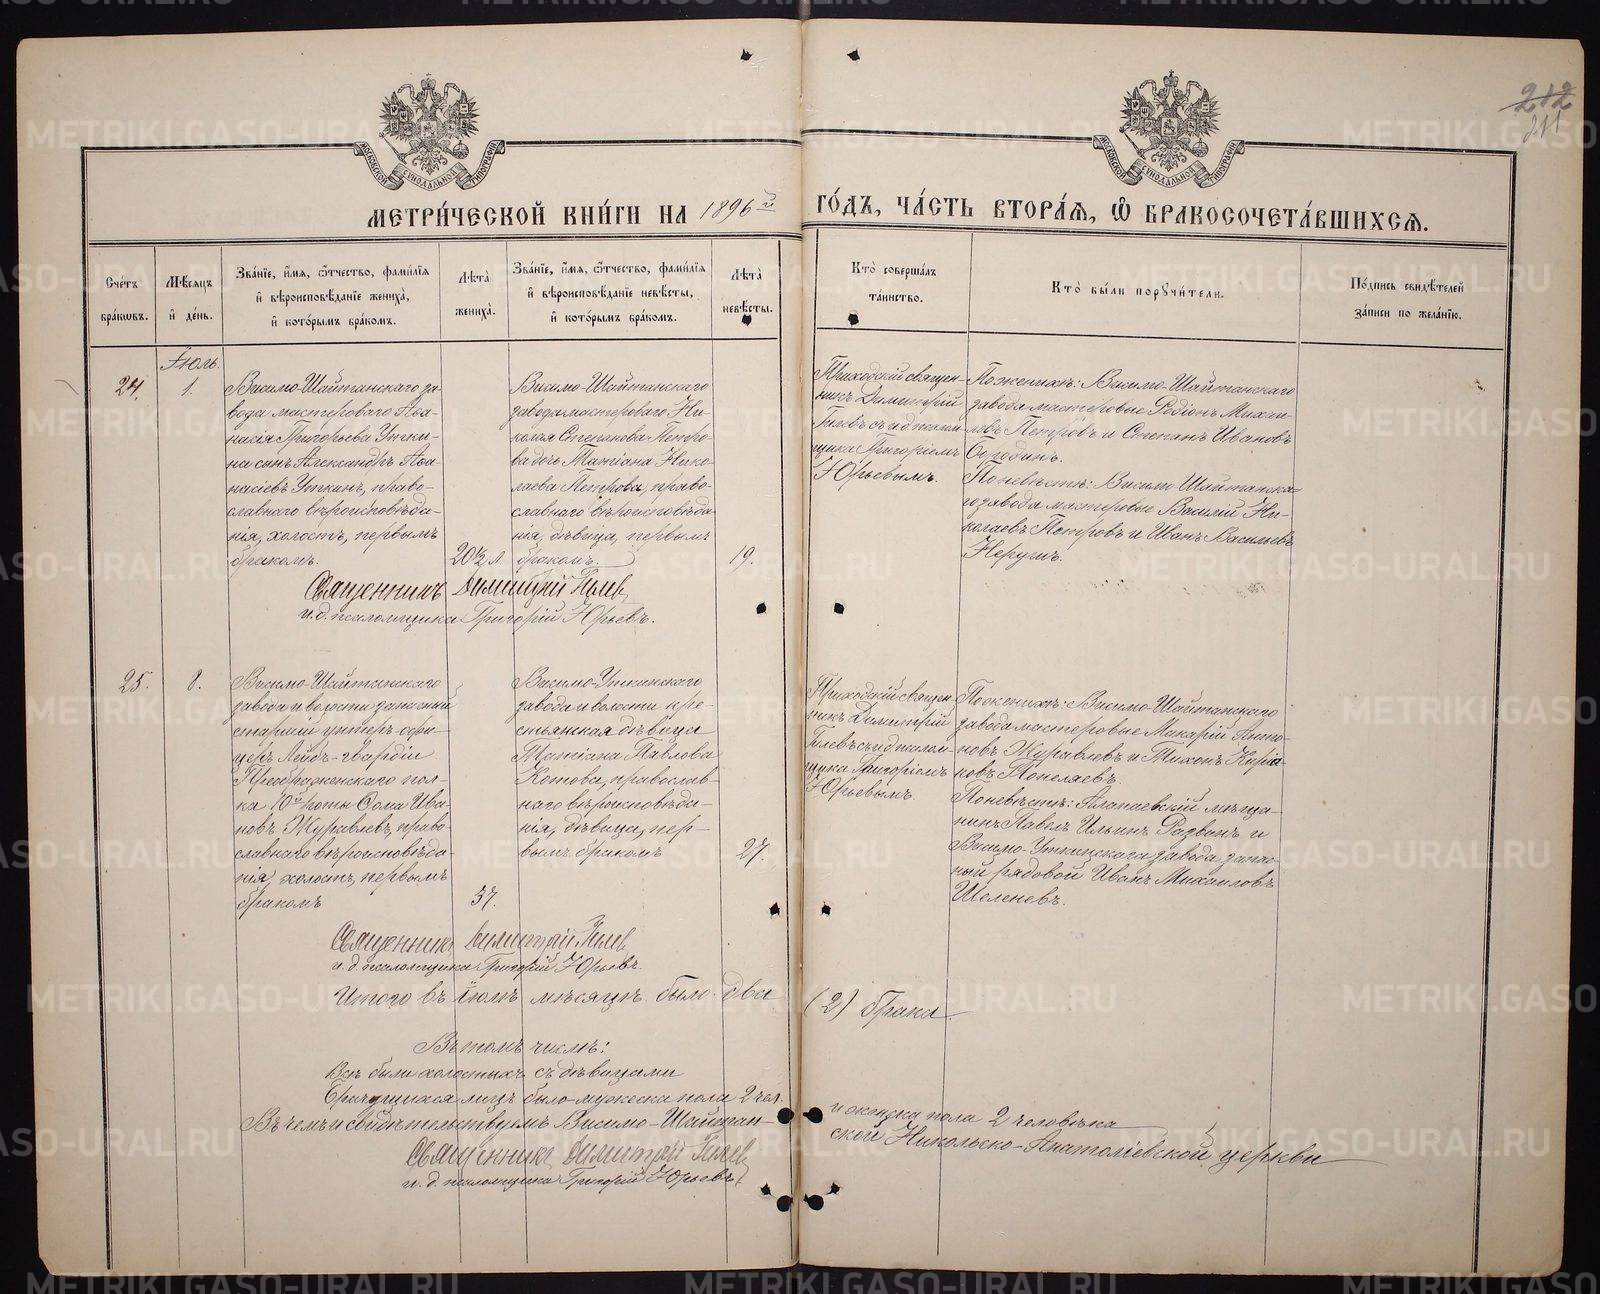 212
211
МОСКОВСКОЙ СѴНОДАЛЬНОЙ ТИПОГРАФІИ
МОСКОВСКОЙ СѴНОДАЛЬНОЙ ТИПОГРАФІИ
МЕТРИ́ЧЕСКОЙ КНИ́ГИ НА 1896й ГО́ДЪ, ЧА́СТЬ ВТОРА́Ѧ, Ѽ БРАКОСОЧЕТА́ВШИХСѦ.
Сче́тъ бра́кѡвъ.
Мѣ́сѧцъ и҆ де́нь.
Зва́нїе, и҆́мѧ, ѻ҆́тчество, фами́лїѧ и҆ вѣроисповѣ́данїе жениха̀, и҆ кото́рымъ бра́комъ.
Лѣ́та жениха̀.
Зва́нїе, и҆́мѧ, ѻ҆́тчество, фами́лїѧ и҆ вѣроисповѣ́данїе невѣ́сты, и҆ кото́рымъ бра́комъ.
Лѣ́та невѣ́сты.
Кто̀ соверша́лъ та́инство.
Кто̀ бы́ли порꙋчи́тели.
По́дпись свидѣ́телей за́писи по жела́нїю.
Іюль.
24.
1.
Висимо-Шайтанскаго за-
вода мастероваго Аѳа-
насія Григорьева Утки-
на сынъ Александръ Аѳа-
насіевъ Уткинъ, право-
славнаго вѣроисповѣда-
нія, холостъ, первымъ
бракомъ.
20½ л
Висимо-Шайтанскаго
завода мастероваго Ни-
колая Степанова Петро-
ва дочь Татіана Нико-
лаева Петрова, право-
славнаго вѣроисповѣда-
нія, дѣвица, первымъ
бракомъ.
19.
Приходскій священ-
никъ Димитрій
Гилевъ съ и.д. псалом-
щика Григоріемъ
Юрьевымъ.
По женихѣ: Висимо-Шайтанскаго
завода мастеровые Родіонъ Михаи-
ловъ Петровъ и Степанъ Ивановъ
Бородинъ.
По невѣстѣ: Висимо-Шайтанска-
го завода мастеровые Василій Ни-
колаевъ Петровъ и Иванъ Васильевъ
Священникъ Димитрій Гилев
и. д. псаломщика Григорій Юрьевъ.
25.
8.
Висимо-Шайтанскаго
завода и волости запасный
старшій унтеръ-офи-
церъ Лейбъ-гвардіи
Преображенскаго пол-
ка 10й роты Ѳома Ива-
новъ Журавлевъ, право-
славнаго вѣроисповѣда-
нія, холостъ, первымъ
бракомъ
37.
Висимо-Уткинскаго
завода и волости кре-
стьянская дѣвица
Татіана Павлова
Котова, православ-
наго вѣроисповѣда-
нія, дѣвица, пер-
вымъ бракомъ
27.
Приходскій священ-
никъ Димитрій
Гилевъ съ и.д. псалом-
щика Григоріемъ
Юрьевымъ.
По женихѣ: Висимо-Шайтанскаго
завода мастеровые Макарій Анто-
новъ Журавлевъ и Тихонъ Киріа-
ковъ
По невѣстѣ: Алапаевскій мѣща-
нинъ Павелъ Ильинъ и
Висимо-Уткинскаго завода запас-
ный рядовой Иванъ Михаиловъ
Шеленевъ.
Священникъ Димитрій Гилев
и. д. псаломщика Григорій Юрьевъ.
Итого въ Іюлѣ мѣсяцѣ было два (2) брака
Въ томъ числѣ:
Всѣ были холостыхъ съ дѣвицами
Брачущихся лицъ было мужеска пола 2 чел. и женска пола 2 человѣка
Въ чемъ и свидѣтельствуемъ Висимо-Шайтан-ской Никольско-Анатоліевской церкви
Священникъ Димитрій Гилев
и. д. псаломщика Григорій Юрьевъ
METRIKI.GASO-URAL.RU